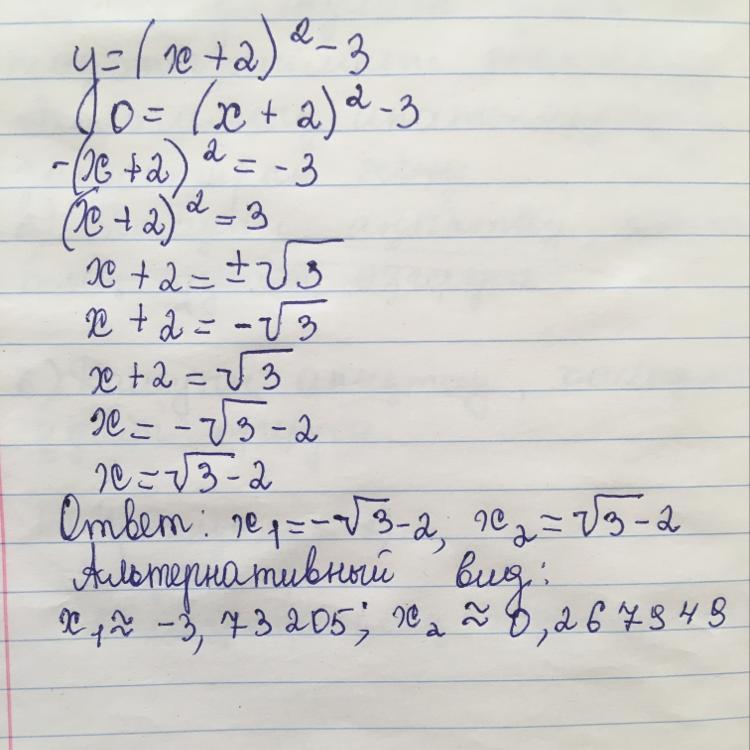 y = (x + 2)² - 3
0 = (x + 2)² - 3
-(x + 2)² = -3
(x + 2)² = 3
x + 2 = ±√3
x + 2 = -√3
x + 2 = √3
x = -√3 - 2
x = √3 - 2
Ответ: x₁ = -√3 - 2, x₂ = √3 - 2
Альтернативный вид:
x₁ ≈ -3,73205; x₂ ≈ 0,267949